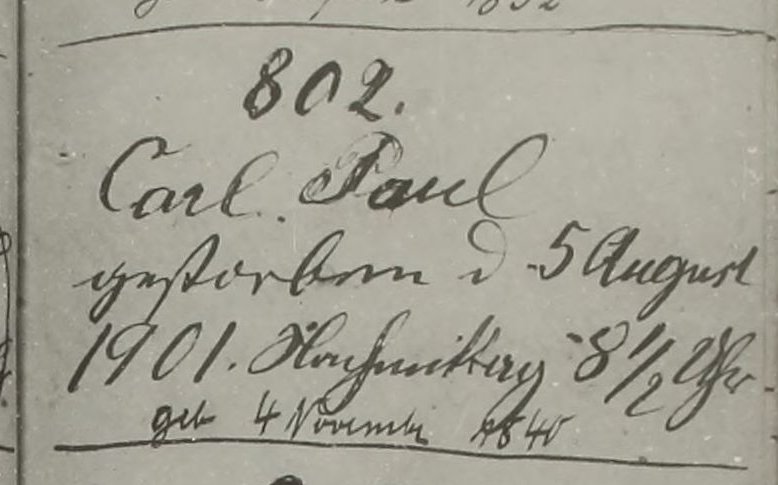 1892
802.
Carl Paul
gestorben d 5 August
1901. Nachmittag 8 1/2 Uhr
geb 4 November 1840